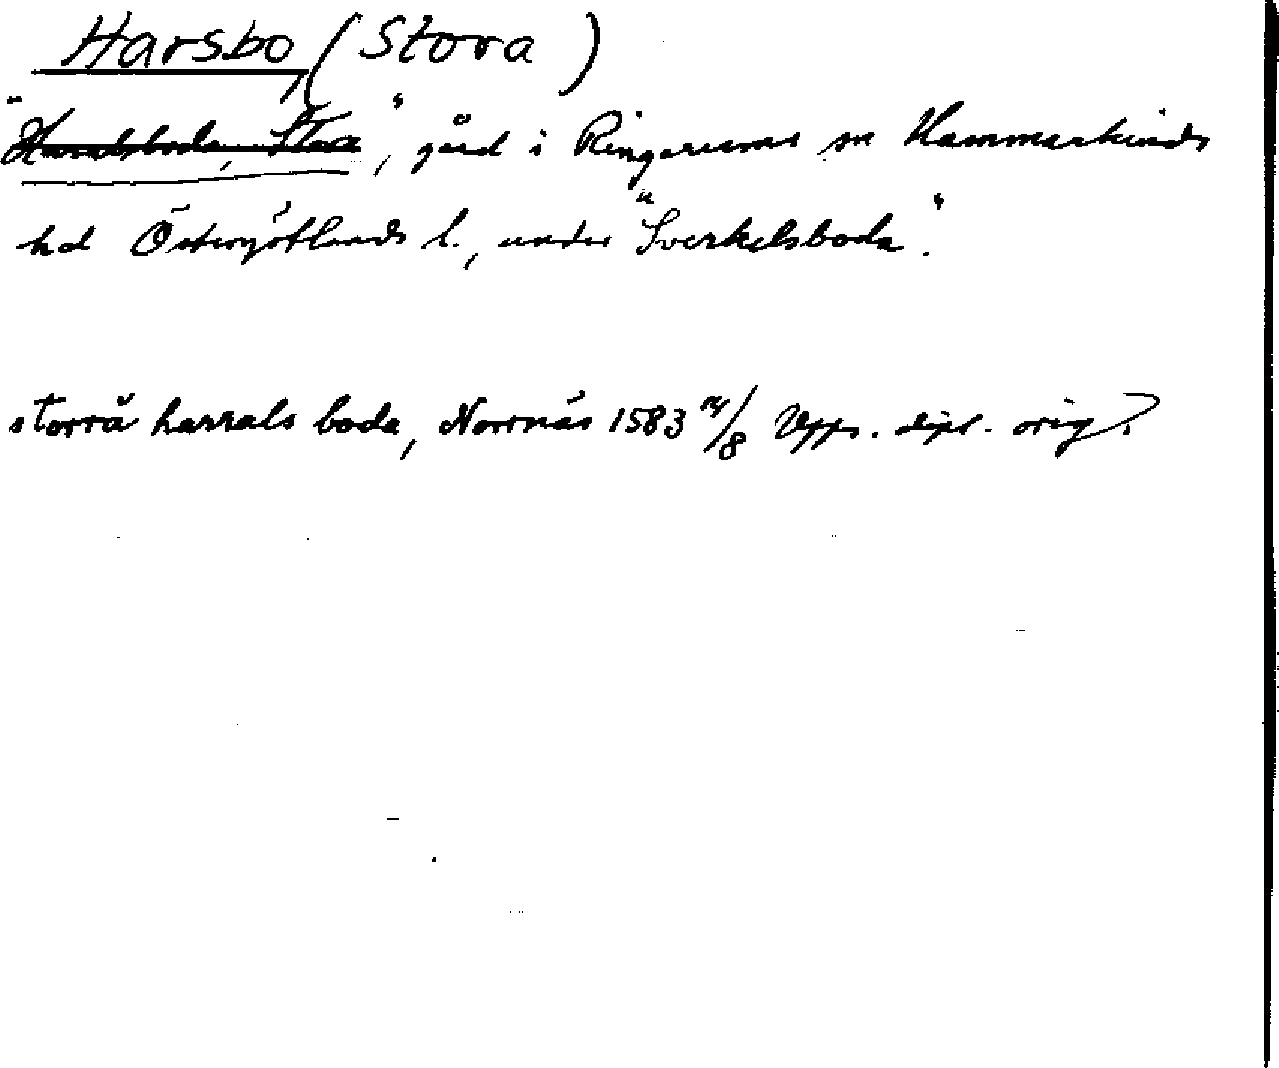 Harsbo, (Stora)
"Haraldsboda, Stora", gård i Ringarums sn Hammarkinds
hd Östergötlands l., under "Sverkelsboda".
storrå harrals boda, Norrnäs 1583 /8 Upps. dipl. orig.